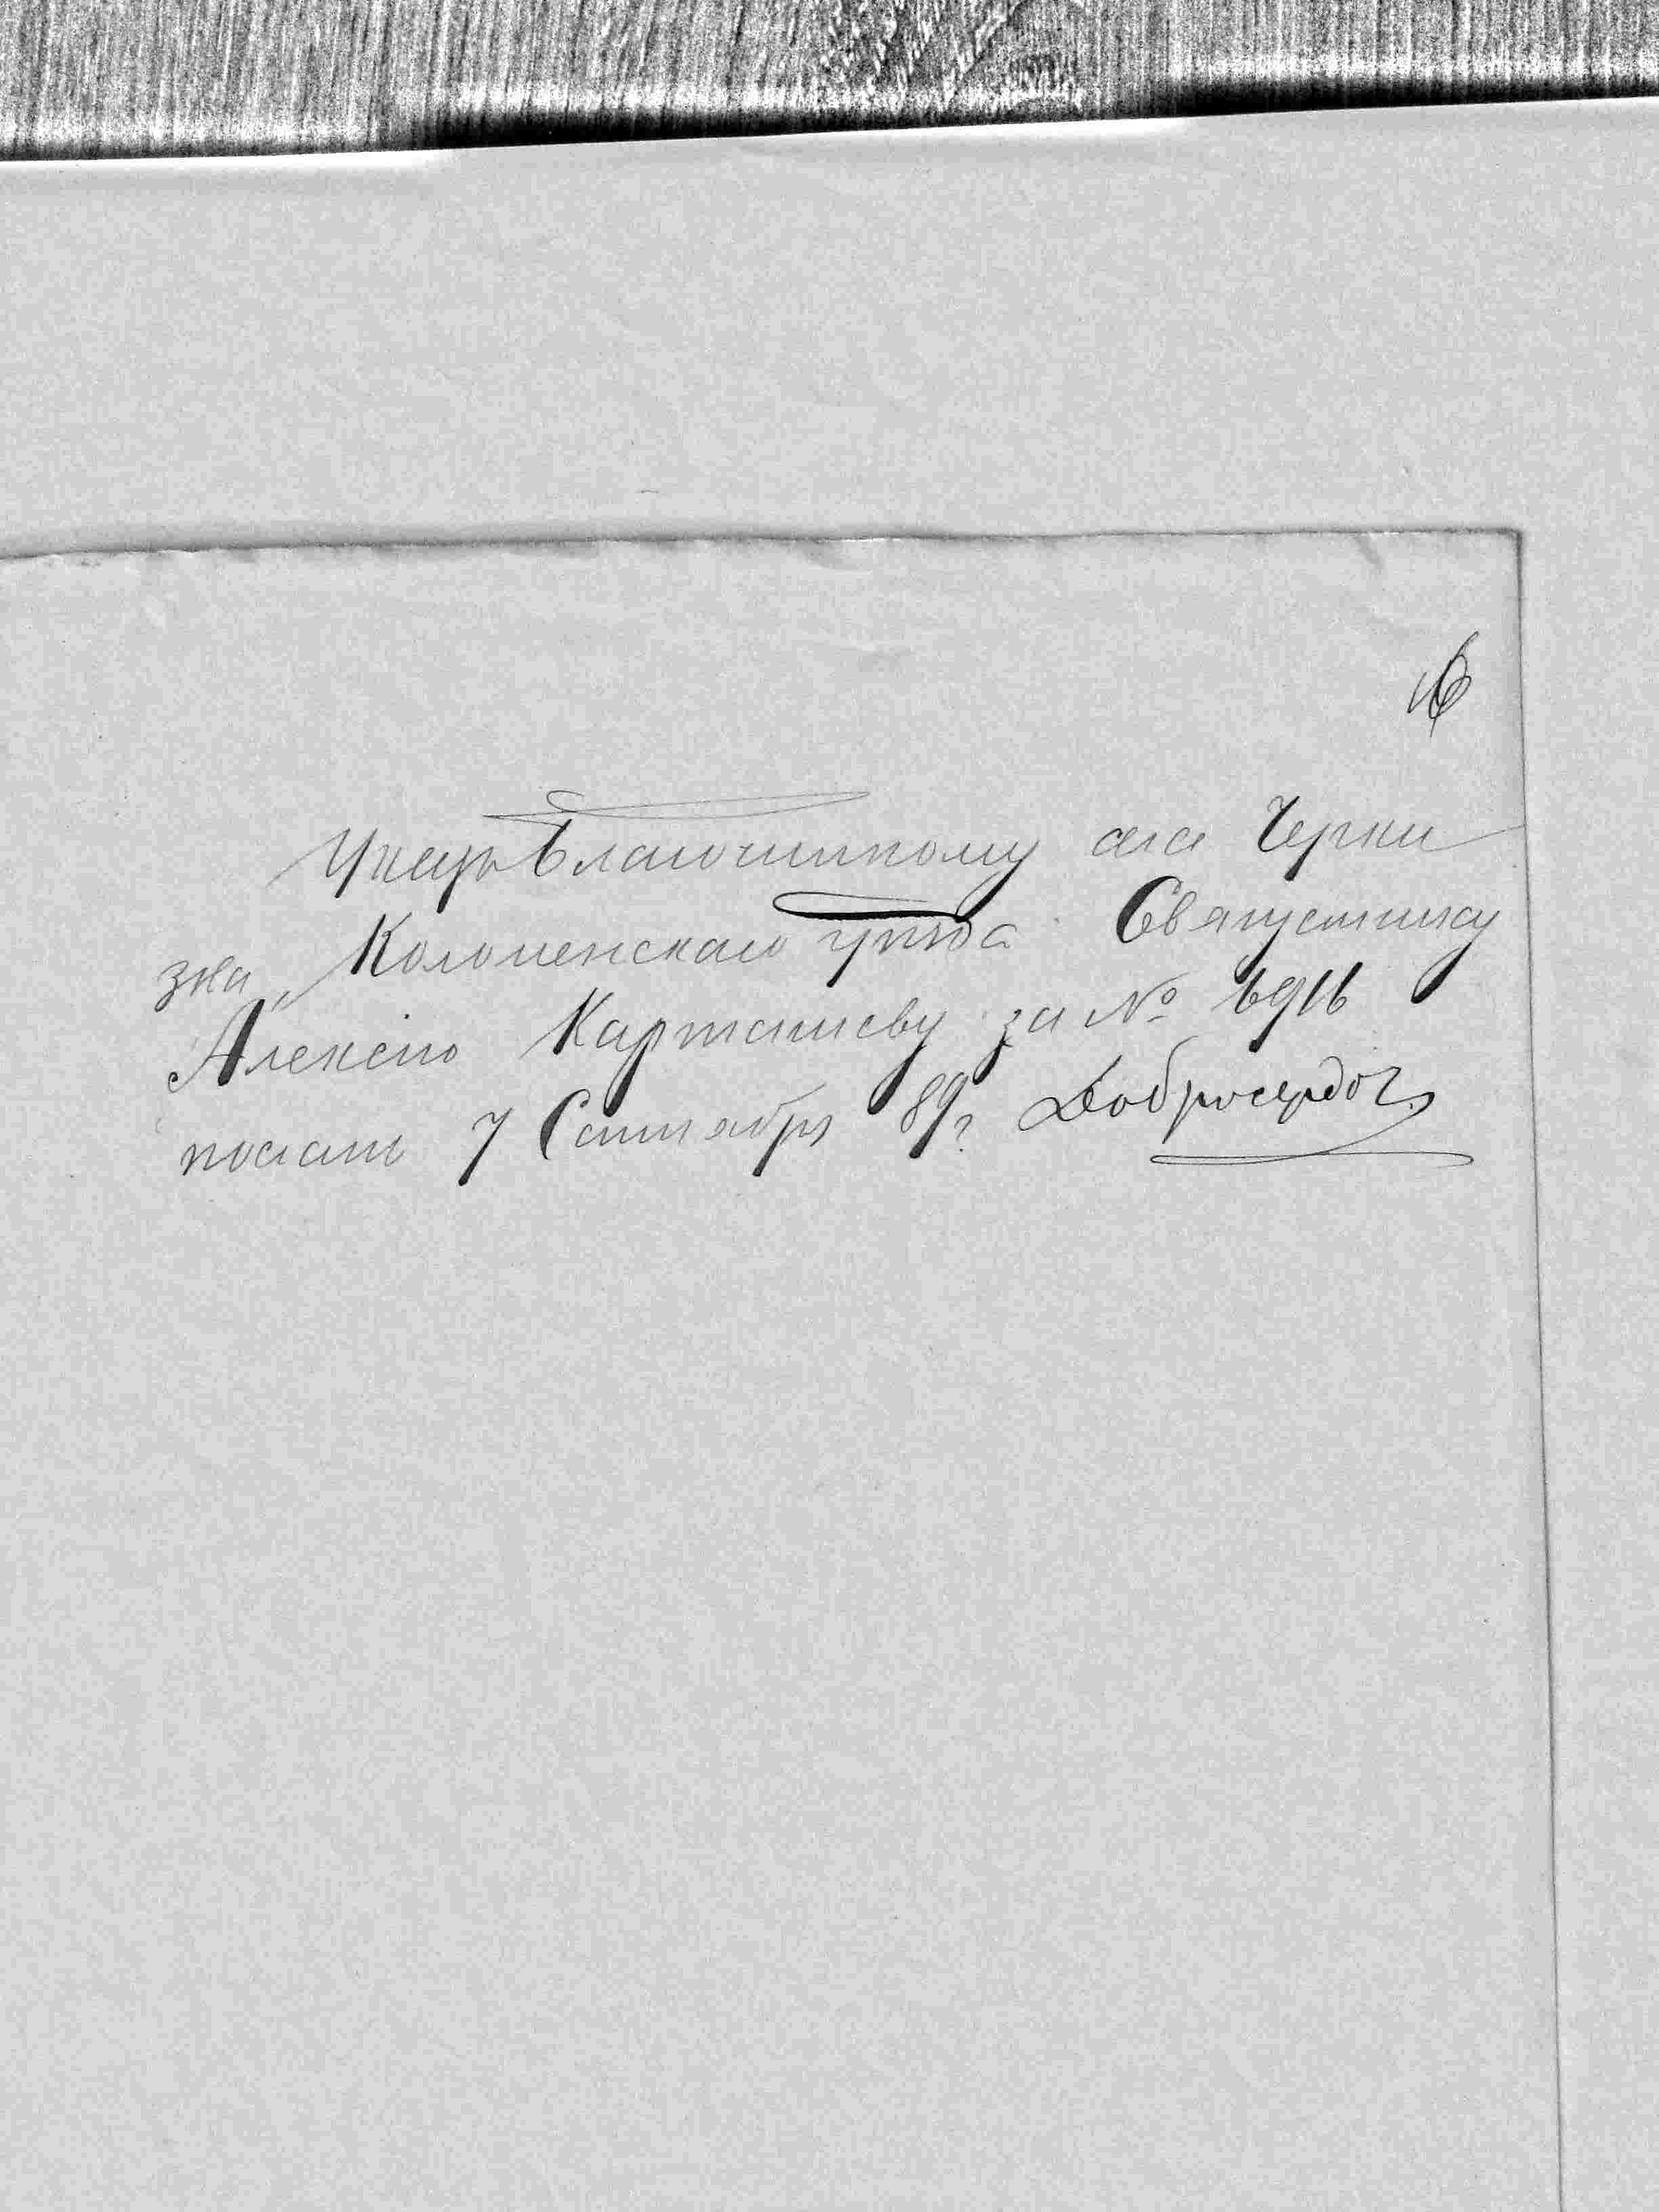 Указъ Благочинному села Черки
зва, Коломенскаго уѣзда Священнику
Алексѣю Карташеву за № 6916
посланъ 7 Сентября 89 г. Добросердов